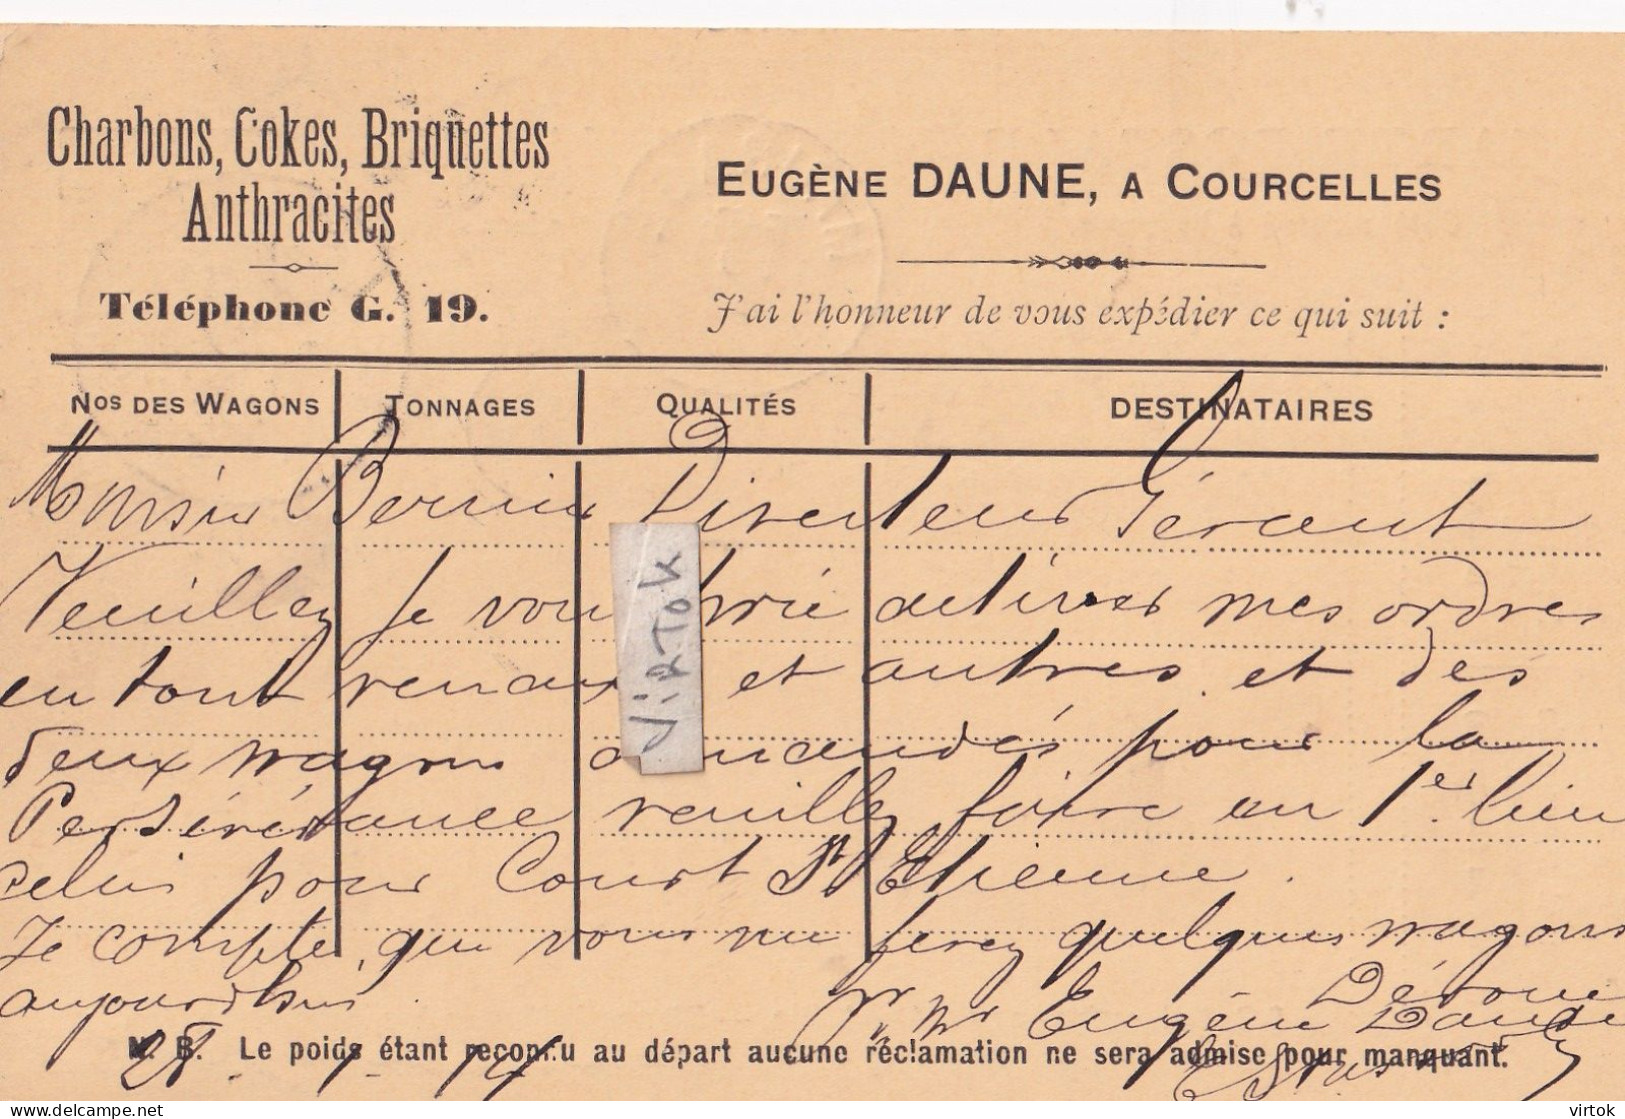 Charbons, Cokes, Briquettes
Anthracites
Téléphone G. 19.
EUGÈNE DAUNE, A COURCELLES
J'ai l'honneur de vous expédier ce qui suit :
Nos DES WAGONS TONNAGES QUALITÉS DESTINATAIRES
Monsieur Bernier Directeur Gérant
Veuillez je vous prie activer mes ordres
en tout et autres et des
deux wagons pour la
Persévérance veuillez faire en 1er lieu
celui pour Court St Etienne.
Je compte que vous me ferez quelques wagons
aujourd'hui
Dévoué
Eugène Daune
N. B. Le poids étant reconnu au départ aucune réclamation ne sera admise pour manquant.
VIRTOK
virtok
delcampe.net